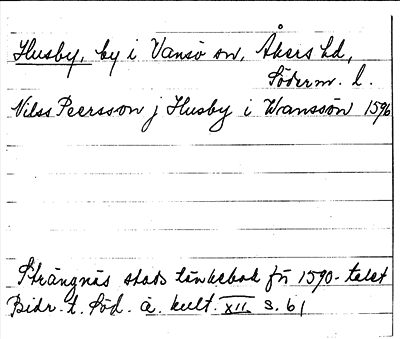 Husby, by i Vansö sn, Åkers hd,
Söderm. l.
Nilss Peersson j Husby i Wanssön 1596
Strängnäs stads tänkebok för 1590-talet
Bidr. t. Söd. ä. kult. XII. s. 61